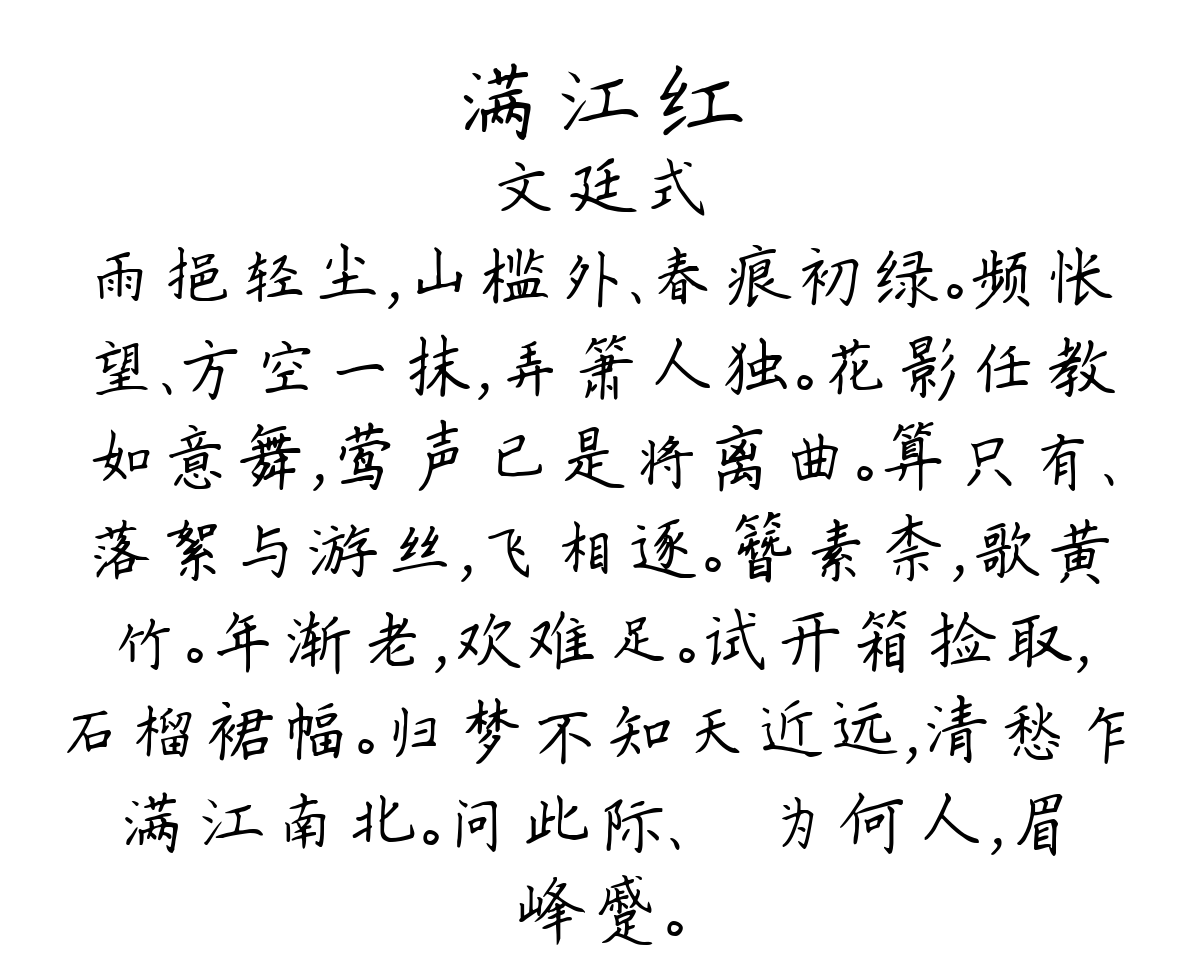 满江红
文廷式
雨挹轻尘,山槛外、春痕初绿。频怅
望、方空一抹,弄箫人独。花影任教
如意舞,莺声已是将离曲。算只有、
落絮与游丝,飞相逐。簪素柰,歌黄
竹。年渐老,欢难足。试开箱捡取,
石榴裙幅。归梦不知天近远,清愁乍
满江南北。问此际、 为何人,眉
峰蹙。